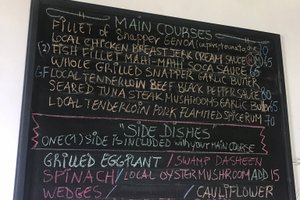 MAIN COURSES
FILLET of SNAPPER GENOA (capers, tomato
LOCAL CHICKEN BREAST JERK CREAM SAUCE
(2) FISH FILLET MAHI-MAHI SOCA SAUCE 65
WHOLE GRILLED SNAPPER GARLIC BUTTER
GF LOCAL TENDERLOIN BEEF BLACK PEPPER SAUCE 80
SEARED TUNA STEAK MUSHROOMS GARLIC BUTTER
LOCAL TENDERLOIN PORK FLAMED SPICE RUM 70
"SIDE DISHES"
ONE (1) SIDE IS INCLUDED WITH YOUR MAIN COURSE
GRILLED EGGPLANT / SWAMP DASHEEN
SPINACH / LOCAL OYSTER MUSHROOM ADD 15
WEDGES / CAULIFLOWER